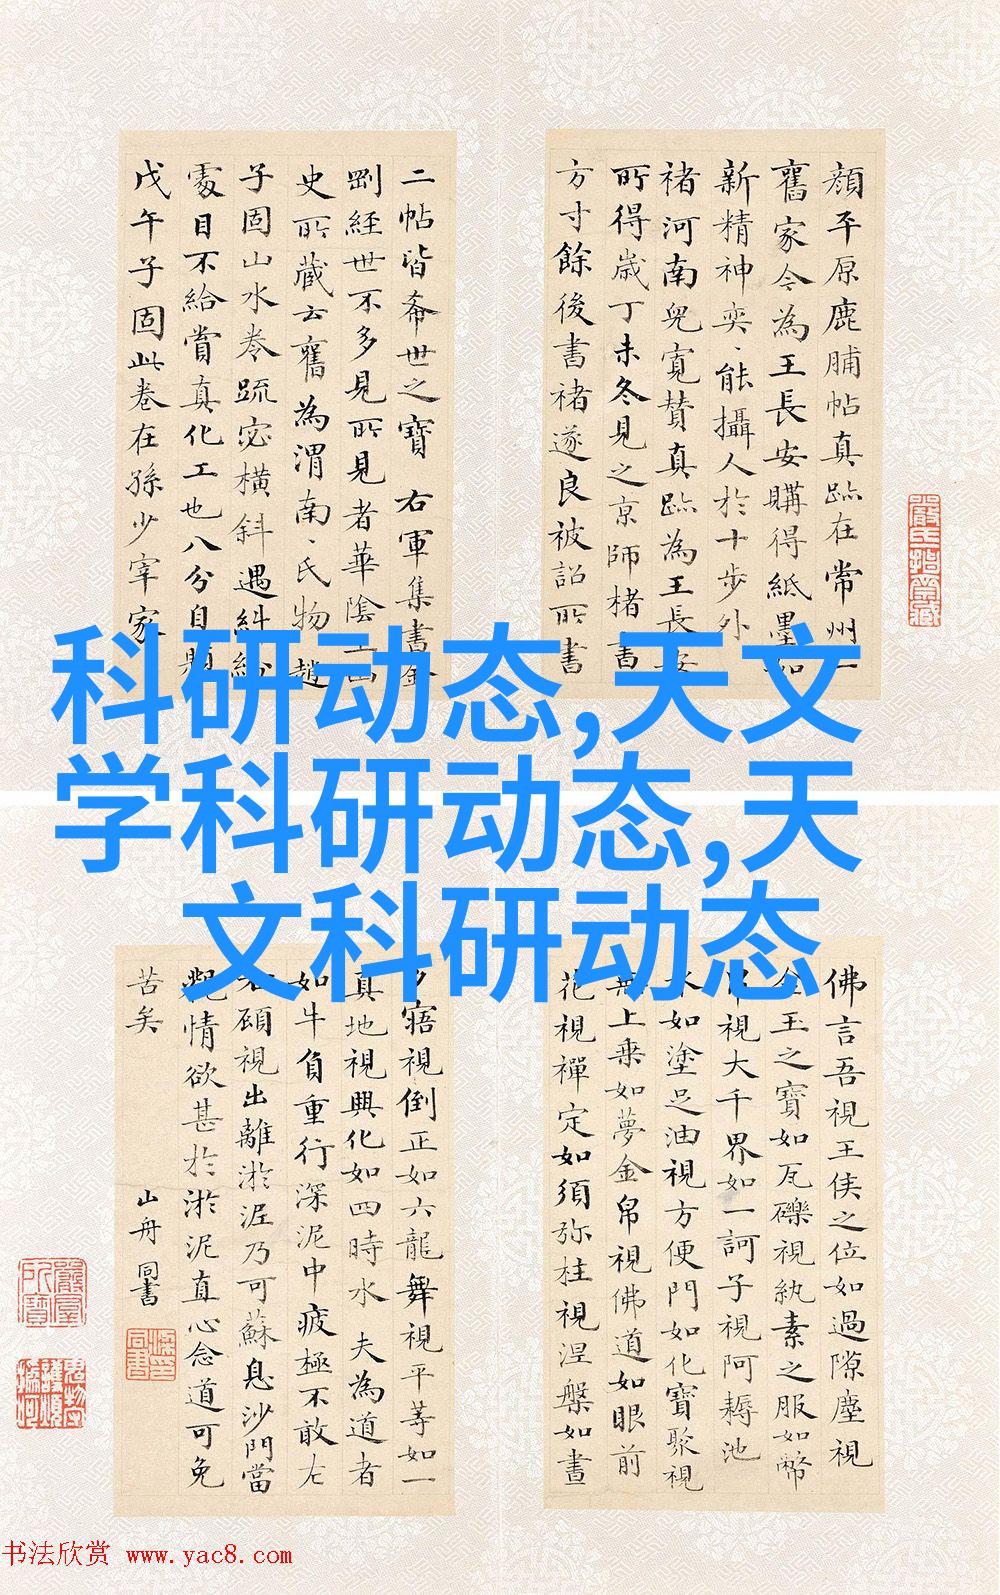 顔平原鹿脯帖真跡在常州一
舊家今為王長安購得紙墨如
新精神奕、能攝人於十步外
褚河南兒寬贊真跡為王長安
所得歲丁未冬見之京師楮書
方寸餘後書褚遂良被詔所書
二帖皆希世之寶 右軍集書金
剛經世不多見所見者華陰王山
史所藏云舊為渭南、氏物趙
子固山水卷疏宓橫斜遇糾紛
處目不給賞真化工也八分自題
戊午子固此卷在孫少宰家
科研动态,天文
学科研动态,天
文科研动态
佛言吾視王侯之位如過隙塵視
金玉之寶如瓦礫視紈素之服如幣
帛視大千界如一訶子視阿耨池
水如塗足油視方便門如化寶聚視
無上乗如夢金帛視佛道如眼前
花視禪定如須弥柱視涅槃如晝
夕寤視倒正如六龍舞視平等如一
真地視興化如四時水 夫為道者
如牛負重行深泥中疲極不敢左
右顧視出離淤泥乃可蘇息沙門當
觀情欲甚於淤泥直心念道可免
苦矣 山舟同書
书法欣赏 www.yac8.com